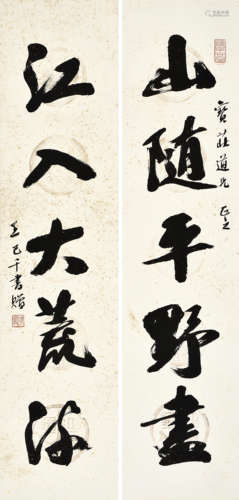 山随平野盡
寳莊道兄正之
江入大荒流
王己千書贈